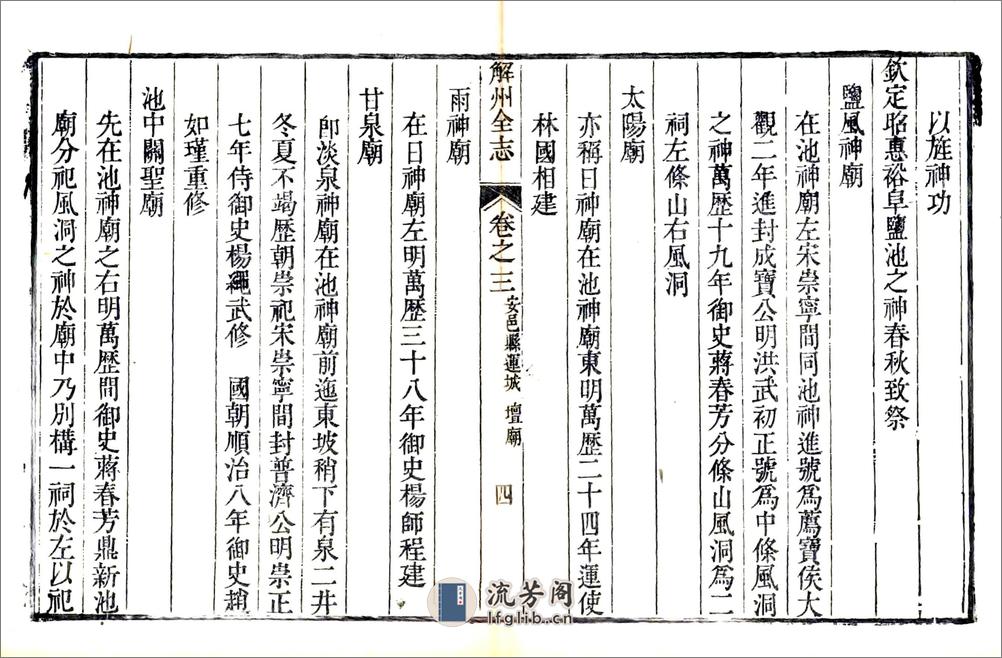 以旌神功
欽定昭惠裕阜鹽池之神春秋致祭
鹽風神廟
在池神廟左宋崇寧間同池神進號爲薦寶侯大
觀二年進封成寶公明洪武初正號爲中條風洞
之神萬歷十九年御史蔣春芳分條山風洞爲二
祠左條山右風洞
太陽廟
亦稱日神廟在池神廟東明萬歷二十四年運使
林國相建
解州全志 卷之三 安邑縣運城 壇廟 四
雨神廟
在日神廟左明萬歷三十八年御史楊師程建
甘泉廟
卽淡泉神廟在池神廟前迤東坡稍下有泉二井
冬夏不竭歷朝崇祀宋崇寧間封普濟公明崇正
七年侍御史楊繩武修 國朝順治八年御史趙
如瑾重修
池中關聖廟
先在池神廟之右明萬歷間御史蔣春芳鼎新池
廟分祀風洞之神於廟中乃別構一祠於左以祀
流芳阁
lfglib.cn